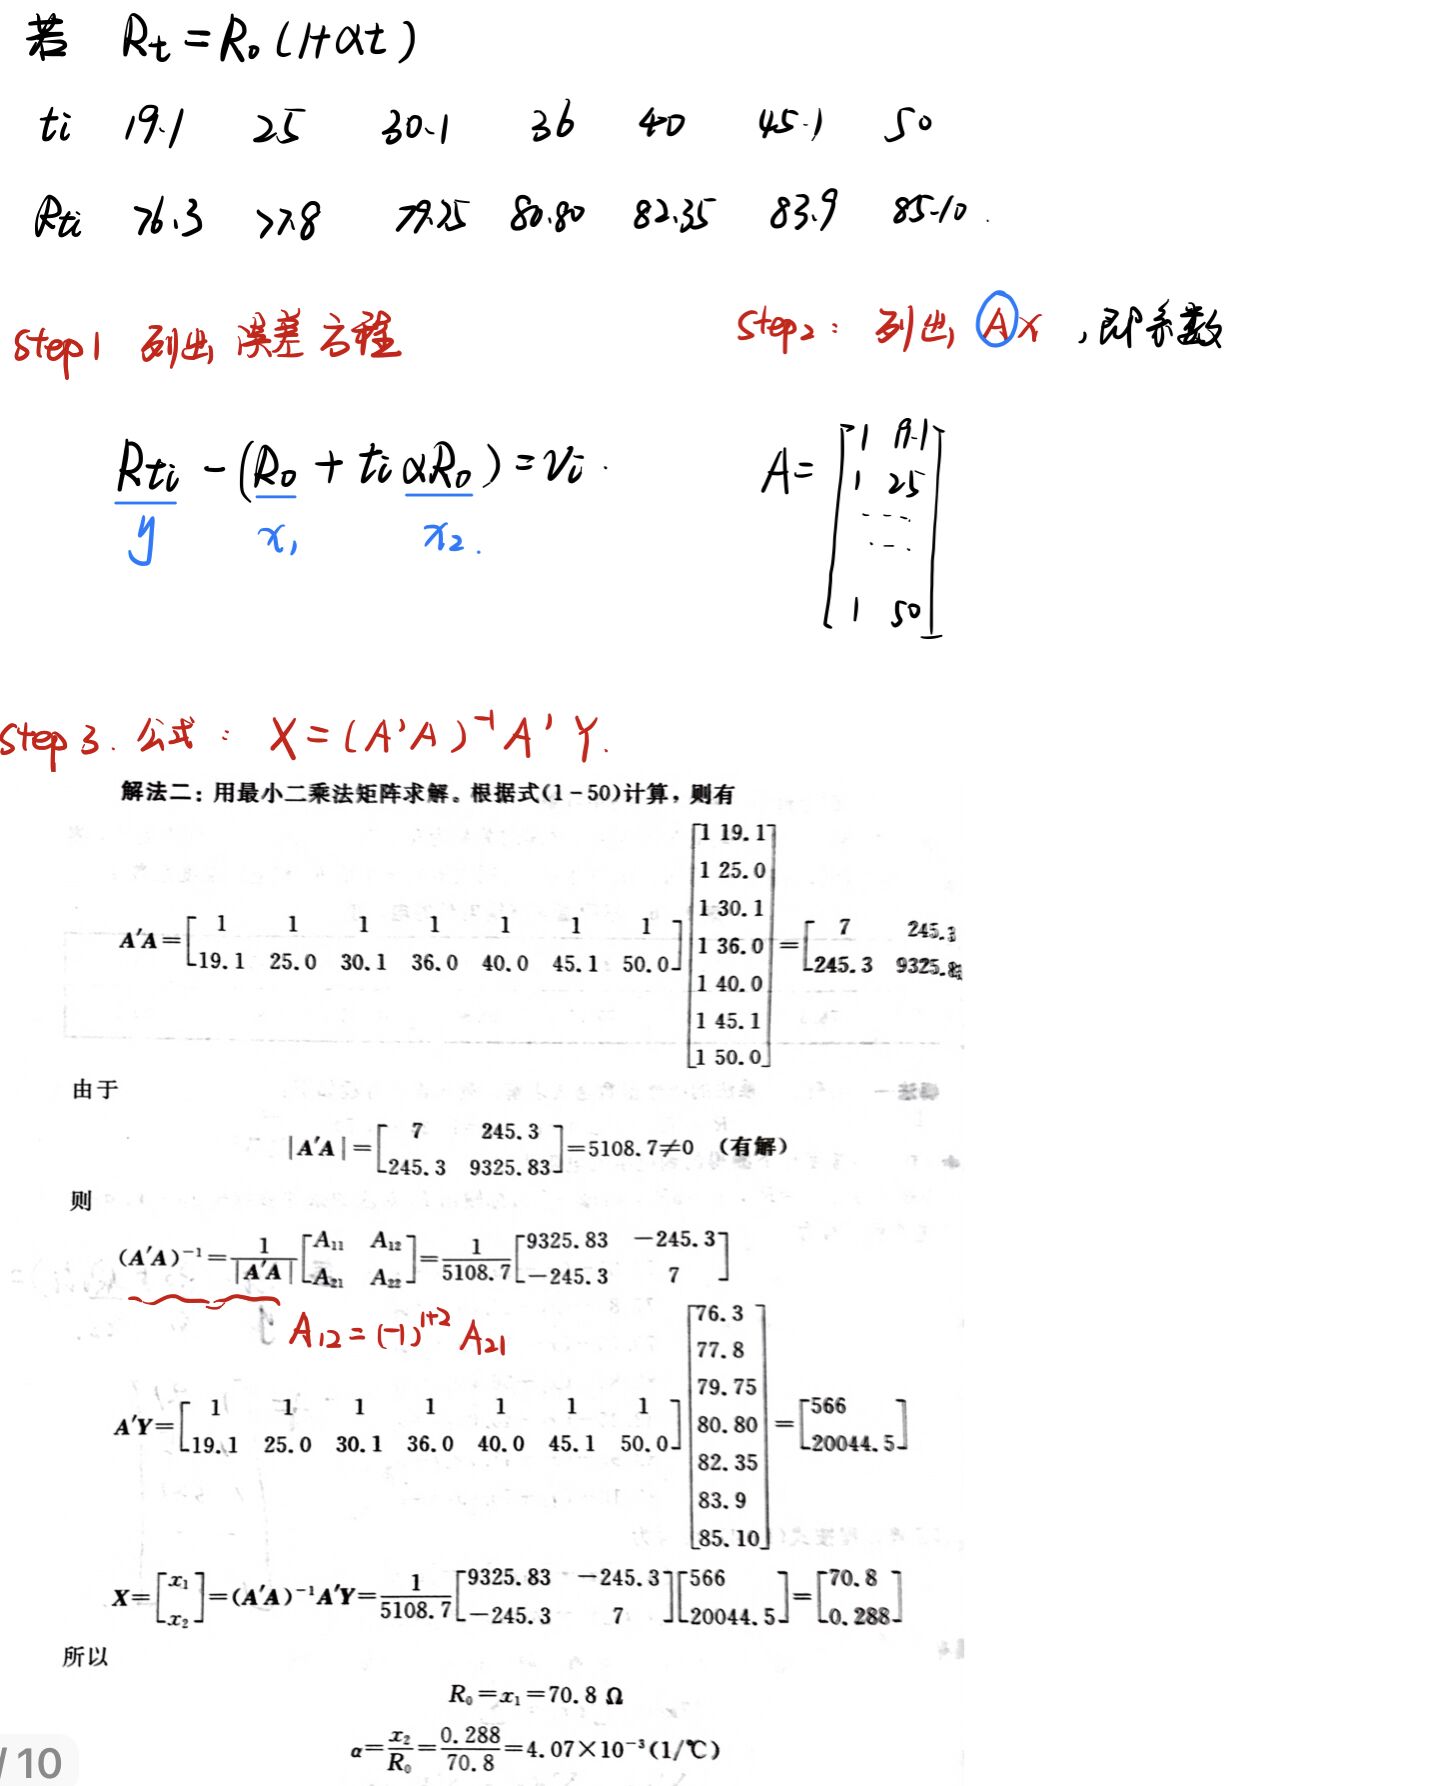 若 Rt = R₀ (1+αt)
ti 19.1 25 30.1 36 40 45.1 50
Rti 76.3 77.8 79.25 80.80 82.35 83.9 85.10.
Step1 列出 误差方程
Step2: 列出 Ax, 即系数
Rti - (R₀ + ti αR₀) = vi.
y x₁ x₂.
A= [1 19.1
1 25
....
...
1 50]
Step 3. 公式: X = (A'A)⁻¹A'Y.
解法二:用最小二乘法矩阵求解。根据式(1-50)计算,则有
A′A=[1 1 1 1 1 1 1
19.1 25.0 30.1 36.0 40.0 45.1 50.0]
[1 19.1
1 25.0
1 30.1
1 36.0
1 40.0
1 45.1
1 50.0]
=[7 245.3
245.3 9325.83]
由于
|A′A|=[7 245.3
245.3 9325.83]=5108.7≠0 (有解)
则
(A′A)⁻¹=1/|A′A| [A₁₁ A₁₂
A₂₁ A₂₂]=1/5108.7 [9325.83 -245.3
-245.3 7]
A₁₂=(-1)¹⁺² A₂₁
A′Y=[1 1 1 1 1 1 1
19.1 25.0 30.1 36.0 40.0 45.1 50.0]
[76.3
77.8
79.75
80.80
82.35
83.9
85.10]
=[566
20044.5]
X=[x₁
x₂]=(A′A)⁻¹A′Y=1/5108.7 [9325.83 -245.3
-245.3 7][566
20044.5]=[70.8
0.288]
所以
R₀=x₁=70.8 Ω
α=x₂/R₀=0.288/70.8=4.07×10⁻³(1/℃)
/ 10